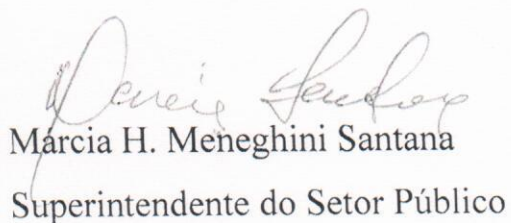 Márcia H. Meneghini Santana
Superintendente do Setor Público